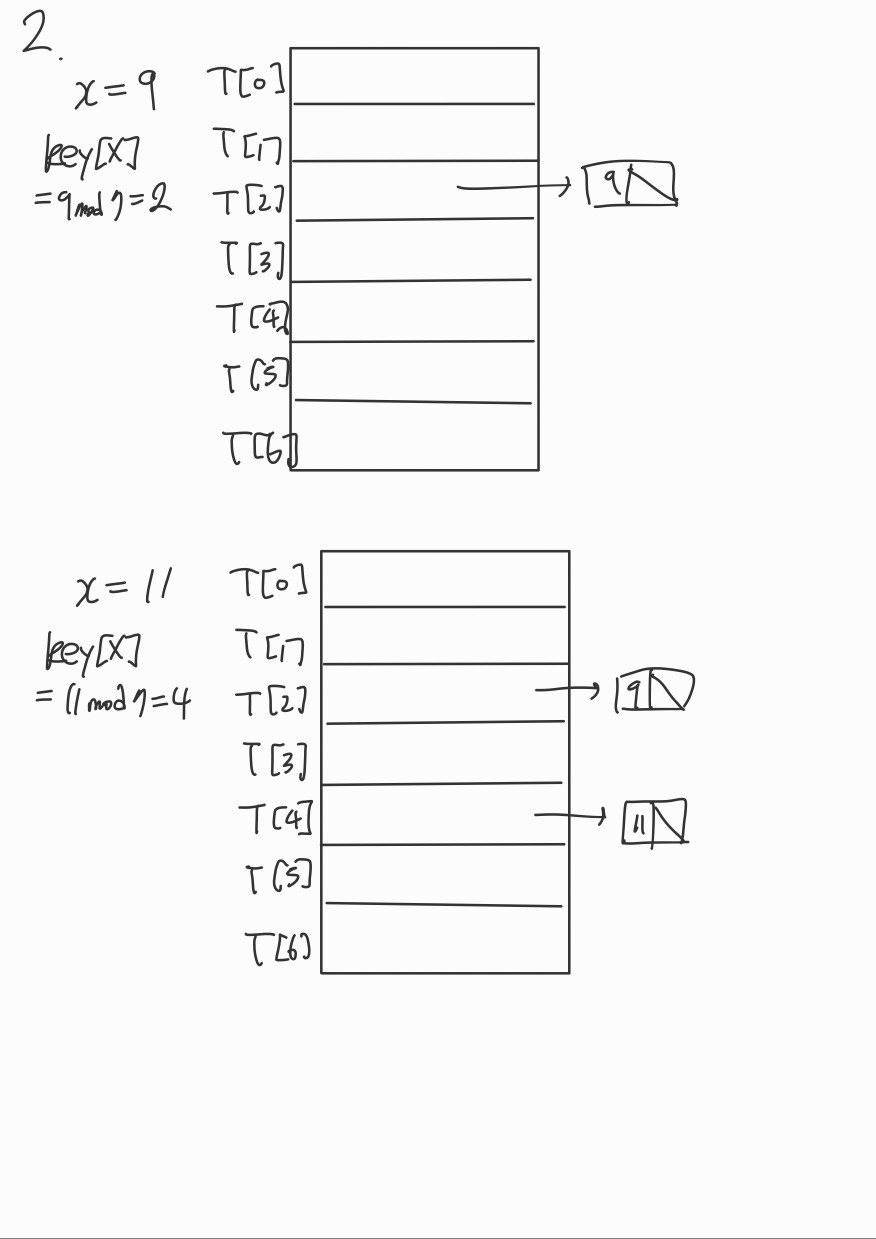 2.
x = 9
key[x]
= 9 mod 7 = 2
T[0]
T[1]
T[2]
T[3]
T[4]
T[5]
T[6]
9
x = 11
key[x]
= 11 mod 7 = 4
T[0]
T[1]
T[2]
T[3]
T[4]
T[5]
T[6]
9
11